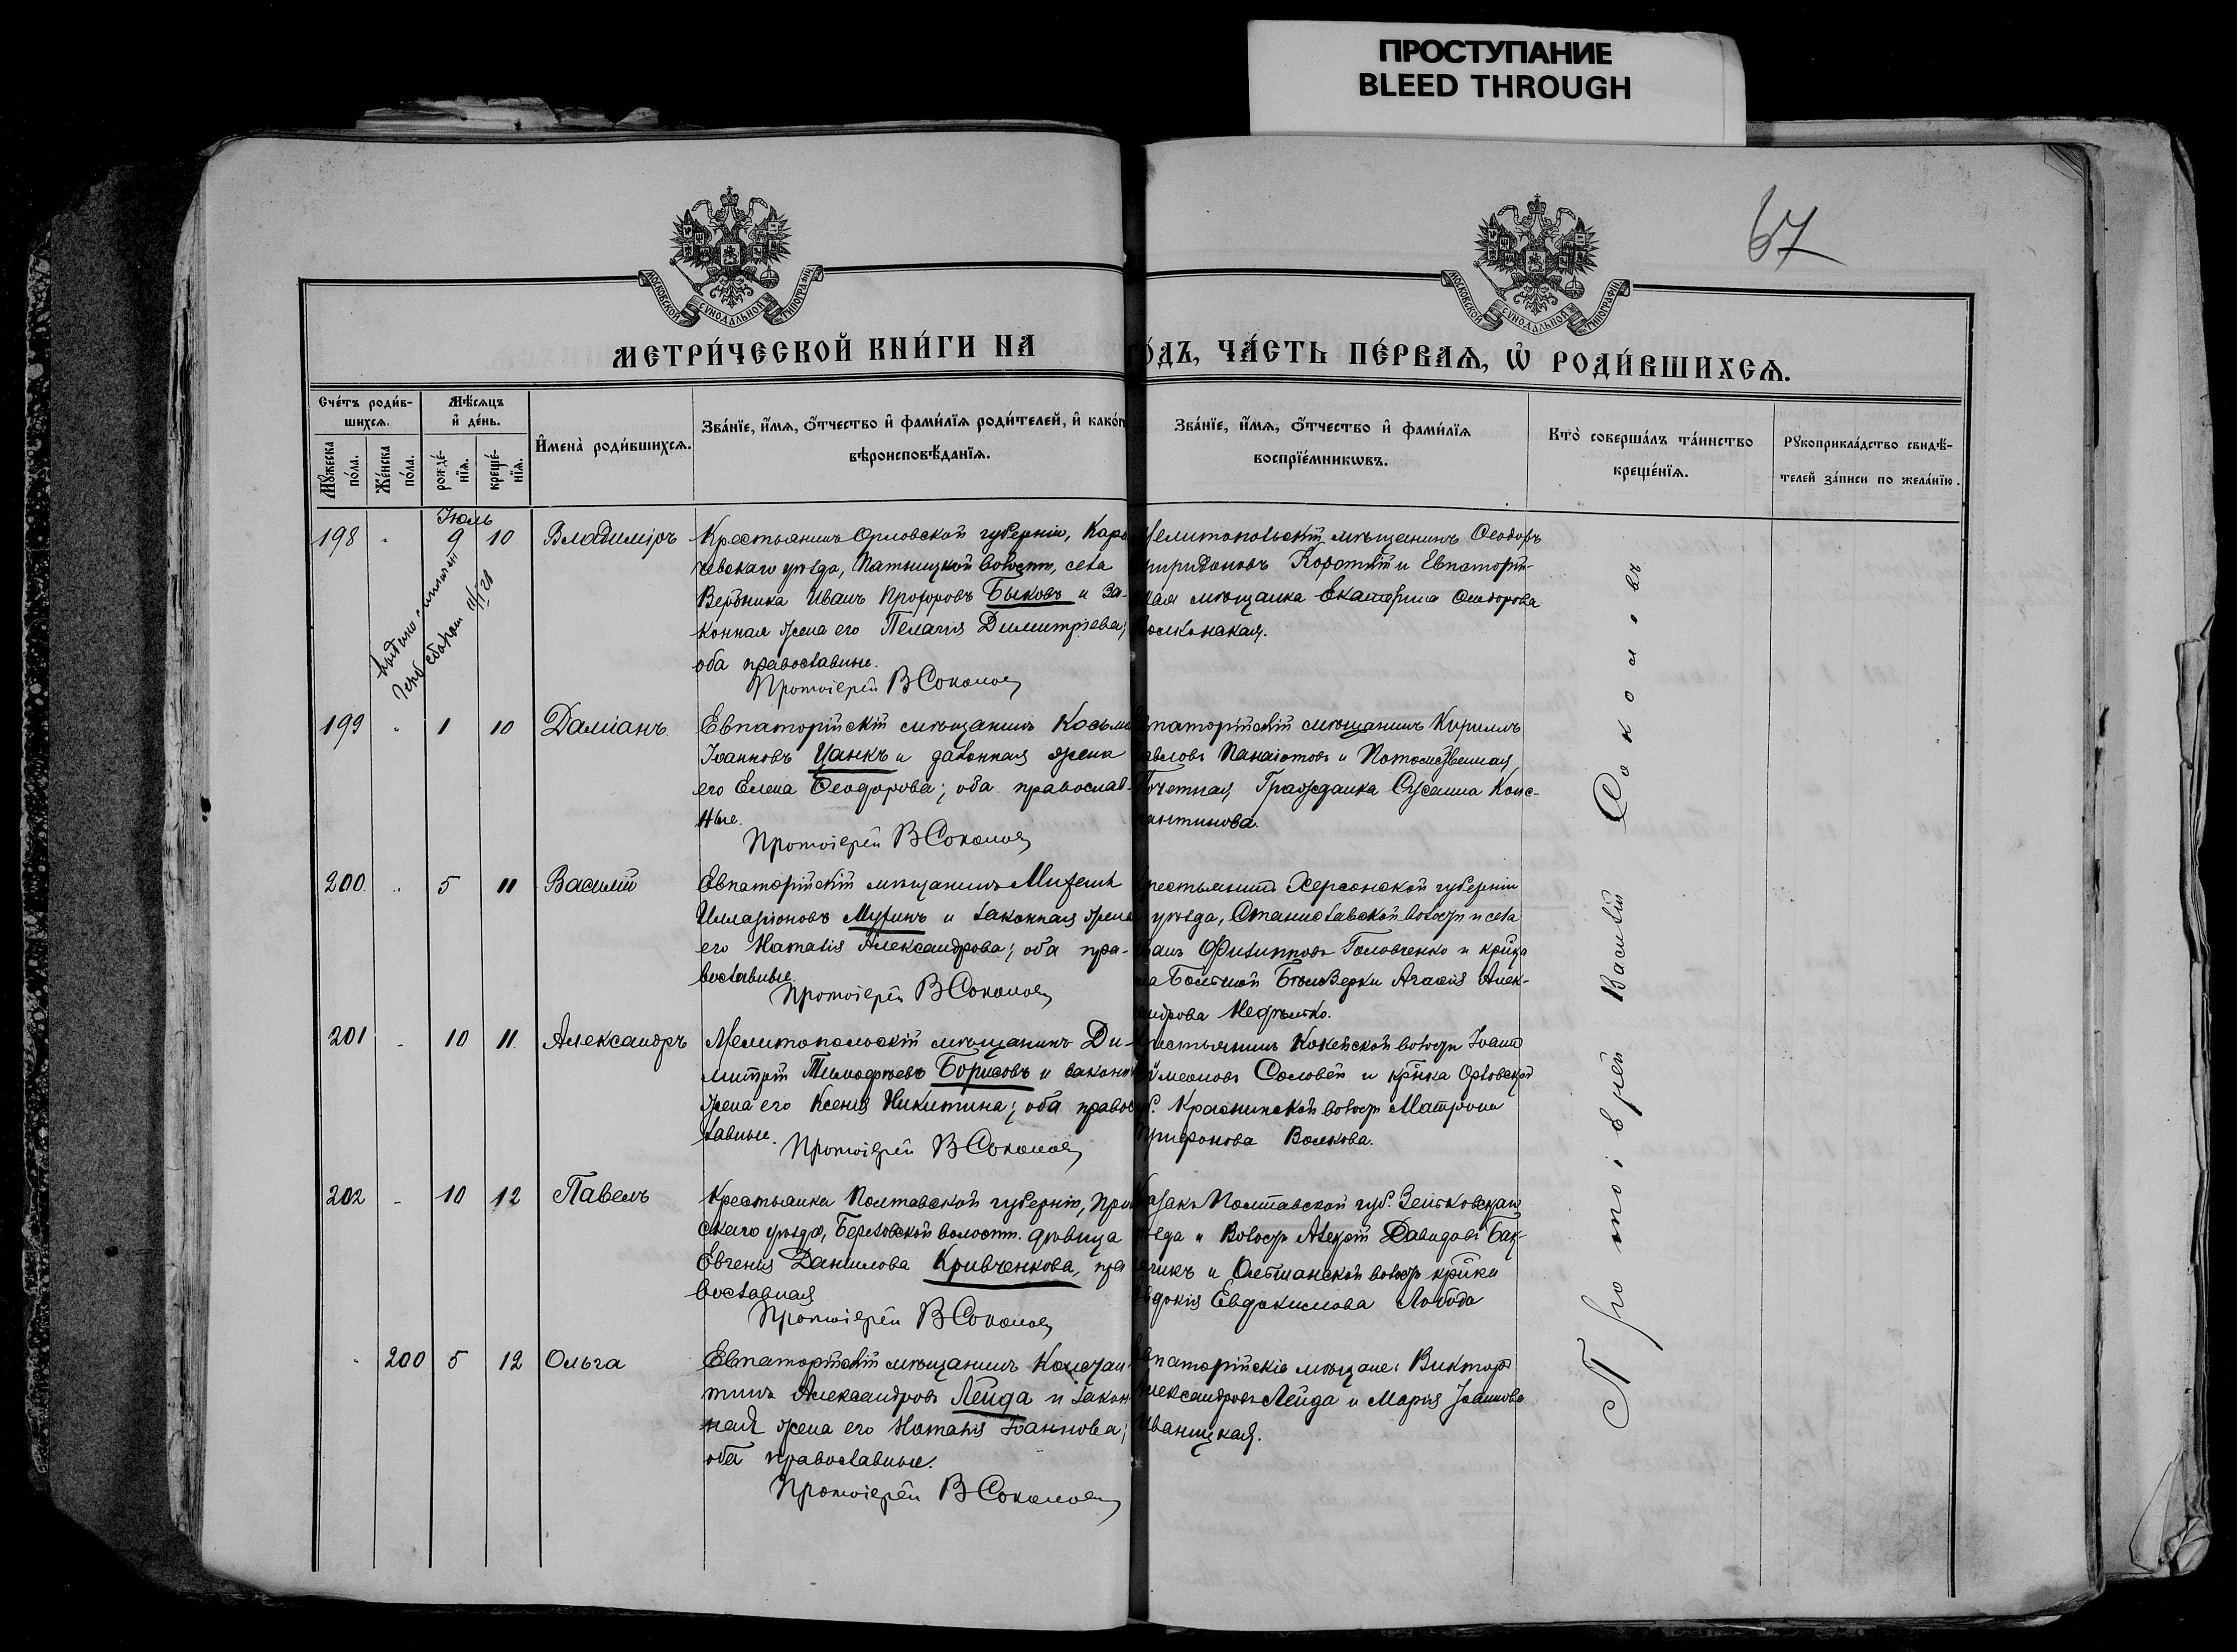 ПРОСТУПАНИЕ
BLEED THROUGH
67
МОСКОВСКОЙ СѴНОДАЛЬНОЙ ТИПОГРАФІИ
МОСКОВСКОЙ СѴНОДАЛЬНОЙ ТИПОГРАФІИ
МЕТРИ́ЧЕСКОЙ КНИ́ГИ НА
О́ДЪ, ЧА́СТЬ ПЕ́РВАѦ, Ѡ҆ РОДИ́ВШИХСѦ.
Сче́тъ роди́в-
шихсѧ.
Мѣ́сѧцъ
и҆ де́нь.
Мꙋ́жеска по́ла.
Же́нска по́ла.
рожде́-
нїѧ.
креще́-
нїѧ.
И҆мена̀ роди́вшихсѧ.
Зва́нїе, и҆́мѧ, ѻ҆́тчество и҆ фами́лїѧ роди́телей, и҆ како́г
вѣроисповѣ́данїѧ.
Зва́нїе, и҆́мѧ, ѻ҆́тчество и҆ фами́лїѧ
воспрїе́мникѡвъ.
Кто̀ соверша́лъ та́инство
креще́нїѧ.
Рꙋкоприкла́дство свидѣ́-
телей за́писи по жела́нїю.
Іюль
198 " 9 10 Владиміръ
Крестьянинъ Орловской губерніи, Кара
чевскаго уѣзда, Пятницкой волости, села
Вербника Иванъ Прохоровъ Быковъ и за-
конная жена его Пелагія Димитріева;
оба православные.
Протоіерей В Соколовъ
Мелитопольскій мѣщанинъ Ѳеодоръ
Спиридоновъ Короткій и Евпаторій-
ская мѣщанка Екатерина Ѳеодорова
Волконская.
199 " 1 10 Даміанъ
Евпаторійскій мѣщанинъ Косьма
Іоанновъ Цанкъ и законная жена
его Елена Ѳеодорова; оба православ-
ные.
Протоіерей В Соколовъ
Евпаторійскій мѣщанинъ Кириллъ
Павловъ Панаіотовъ и Потомственная
Почетная Гражданка Сусанна Конс-
тантинова.
200 " 5 11 Василій
Евпаторійскій мѣщанинъ Михаилъ
Илларіоновъ Музинъ и законная жена
его Наталія Александрова; оба пра-
вославные.
Протоіерей В Соколовъ
Крестьянинъ Херсонской губерніи
и уѣзда, Станиславской волости и села
Иванъ Филипповъ Головченко и
Большой Бѣлозерки Агафія Алек-
сандрова
201 10 11 Александръ
Мелитопольскій мѣщанинъ Ди-
митрій Тимофѣевъ Борисовъ и законн
жена его Ксенія Никитина; оба правос
лавные.
Протоіерей В Соколовъ
Крестьянинъ волости Іоаннъ
Симеоновъ Соловей и Орловской
губ. Краснинской волости Матрона
Трифонова Волкова.
202 10 12 Павелъ
Крестьянка Полтавской губерніи,
скаго уѣзда, Березовской волости. дѣвица
Евгенія Даніилова Кривченкова, пра
вославная
Протоіерей В Соколовъ
Казакъ Полтавской губ. Зеньковскаго
уѣзда и волости Алексій Давидовъ
и волости
Евдокія Евдокимова Лобода
200 5 12 Ольга
Евпаторійскій мѣщанинъ Констан-
тинъ Александровъ Лейда и закон
ная жена его Наталія Іоаннова;
оба православные.
Протоіерей В Соколовъ
Евпаторійскіе мѣщане: Викторъ
Александровъ Лейда и Марія Іоаннова
Иваницкая.
Протоіерей Василій Соколовъ